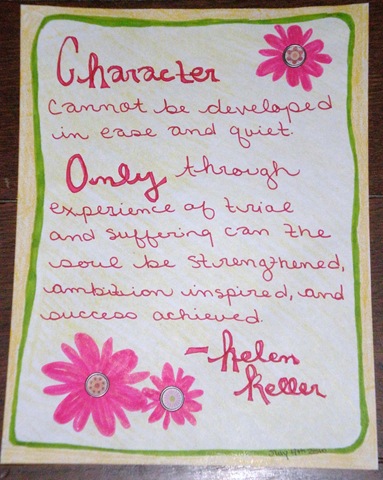 Character
cannot be developed
in ease and quiet.
Only through
experience of trial
and suffering can the
soul be strengthened,
ambition inspired, and
success achieved.
- Helen
Keller
July